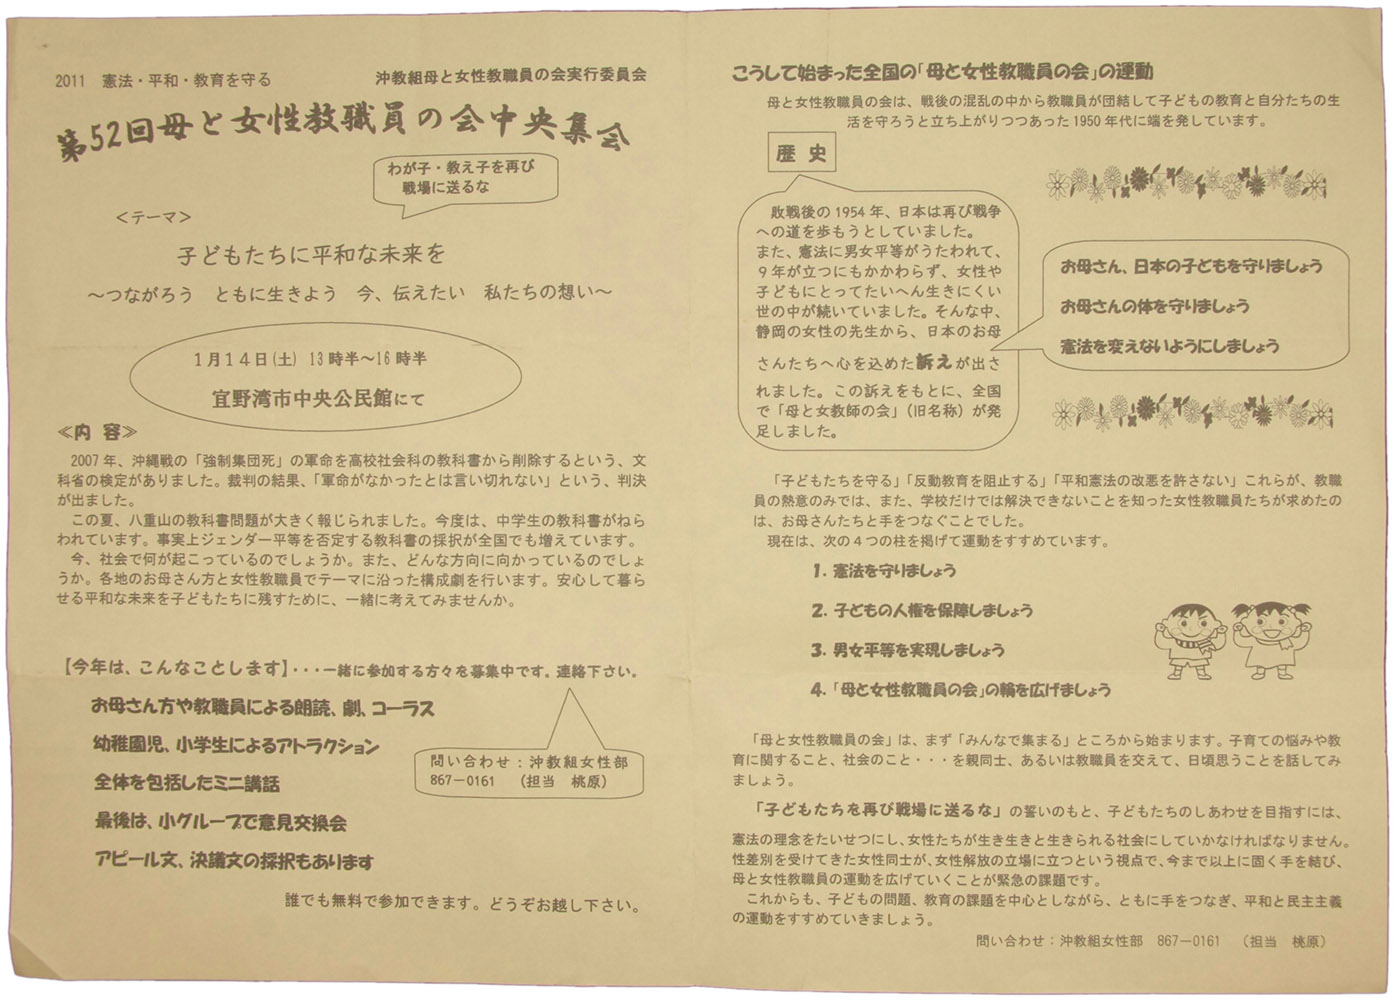 2011　憲法・平和・教育を守る　　　沖教組母と女性教職員の会実行委員会
第52回母と女性教職員の会中央集会
わが子・教え子を再び
戦場に送るな
＜テーマ＞
子どもたちに平和な未来を
～つながろう　ともに生きよう　今、伝えたい　私たちの想い～
1月14日(土)　13時半～16時半
宜野湾市中央公民館にて
≪内 容≫
2007年、沖縄戦の「強制集団死」の軍命を高校社会科の教科書から削除するという、文
科省の検定がありました。裁判の結果、「軍命がなかったとは言い切れない」という、判決
が出ました。
この夏、八重山の教科書問題が大きく報じられました。今度は、中学生の教科書がねら
われています。事実上ジェンダー平等を否定する教科書の採択が全国でも増えています。
今、社会で何が起こっているのでしょうか。また、どんな方向に向かっているのでしょ
うか。各地のお母さん方と女性教職員でテーマに沿った構成劇を行います。安心して暮ら
せる平和な未来を子どもたちに残すために、一緒に考えてみませんか。
【今年は、こんなことします】・・・一緒に参加する方々を募集中です。連絡下さい。
お母さん方や教職員による朗読、劇、コーラス
幼稚園児、小学生によるアトラクション
全体を包括したミニ講話
最後は、小グループで意見交換会
アピール文、決議文の採択もあります
問い合わせ：沖教組女性部
867－0161　（担当　桃原）
誰でも無料で参加できます。どうぞお越し下さい。
こうして始まった全国の「母と女性教職員の会」の運動
母と女性教職員の会は、戦後の混乱の中から教職員が団結して子どもの教育と自分たちの生
活を守ろうと立ち上がりつつあった1950年代に端を発しています。
歴 史
敗戦後の1954年、日本は再び戦争
への道を歩もうとしていました。
また、憲法に男女平等がうたわれて、
９年が立つにもかかわらず、女性や
子どもにとってたいへん生きにくい
世の中が続いていました。そんな中、
静岡の女性の先生から、日本のお母
さんたちへ心を込めた訴えが出さ
れました。この訴えをもとに、全国
で「母と女教師の会」（旧名称）が発
足しました。
お母さん、日本の子どもを守りましょう
お母さんの体を守りましょう
憲法を変えないようにしましょう
「子どもたちを守る」「反動教育を阻止する」「平和憲法の改悪を許さない」これらが、教職
員の熱意のみでは、また、学校だけでは解決できないことを知った女性教職員たちが求めたの
は、お母さんたちと手をつなぐことでした。
現在は、次の４つの柱を掲げて運動をすすめています。
1. 憲法を守りましょう
2. 子どもの人権を保障しましょう
3. 男女平等を実現しましょう
4.「母と女性教職員の会」の輪を広げましょう
「母と女性教職員の会」は、まず「みんなで集まる」ところから始まります。子育ての悩みや教
育に関すること、社会のこと・・・を親同士、あるいは教職員を交えて、日頃思うことを話してみ
ましょう。
「子どもたちを再び戦場に送るな」の誓いのもと、子どもたちのしあわせを目指すには、
憲法の理念をたいせつにし、女性たちが生き生きと生きられる社会にしていかなければなりません。
性差別を受けてきた女性同士が、女性解放の立場に立つという視点で、今まで以上に固く手を結び、
母と女性教職員の運動を広げていくことが緊急の課題です。
これからも、子どもの問題、教育の課題を中心としながら、ともに手をつなぎ、平和と民主主義
の運動をすすめていきましょう。
問い合わせ：沖教組女性部　867－0161　（担当　桃原）